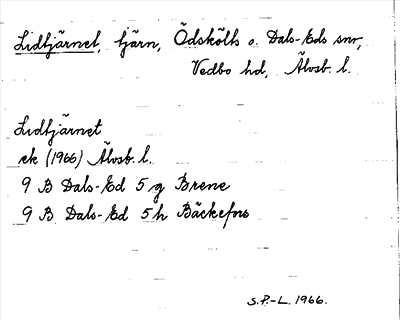 Lidtjärnet, tjärn, Ödskölts o. Dals-Eds snr,
Vedbo hd, Älvsb. l.
Lidtjärnet
ek (1966) Älvsb. l.
9 B Dals-Ed 5 g Brene
9 B Dals-Ed 5 h Bäckefors
S.P.-L. 1966.